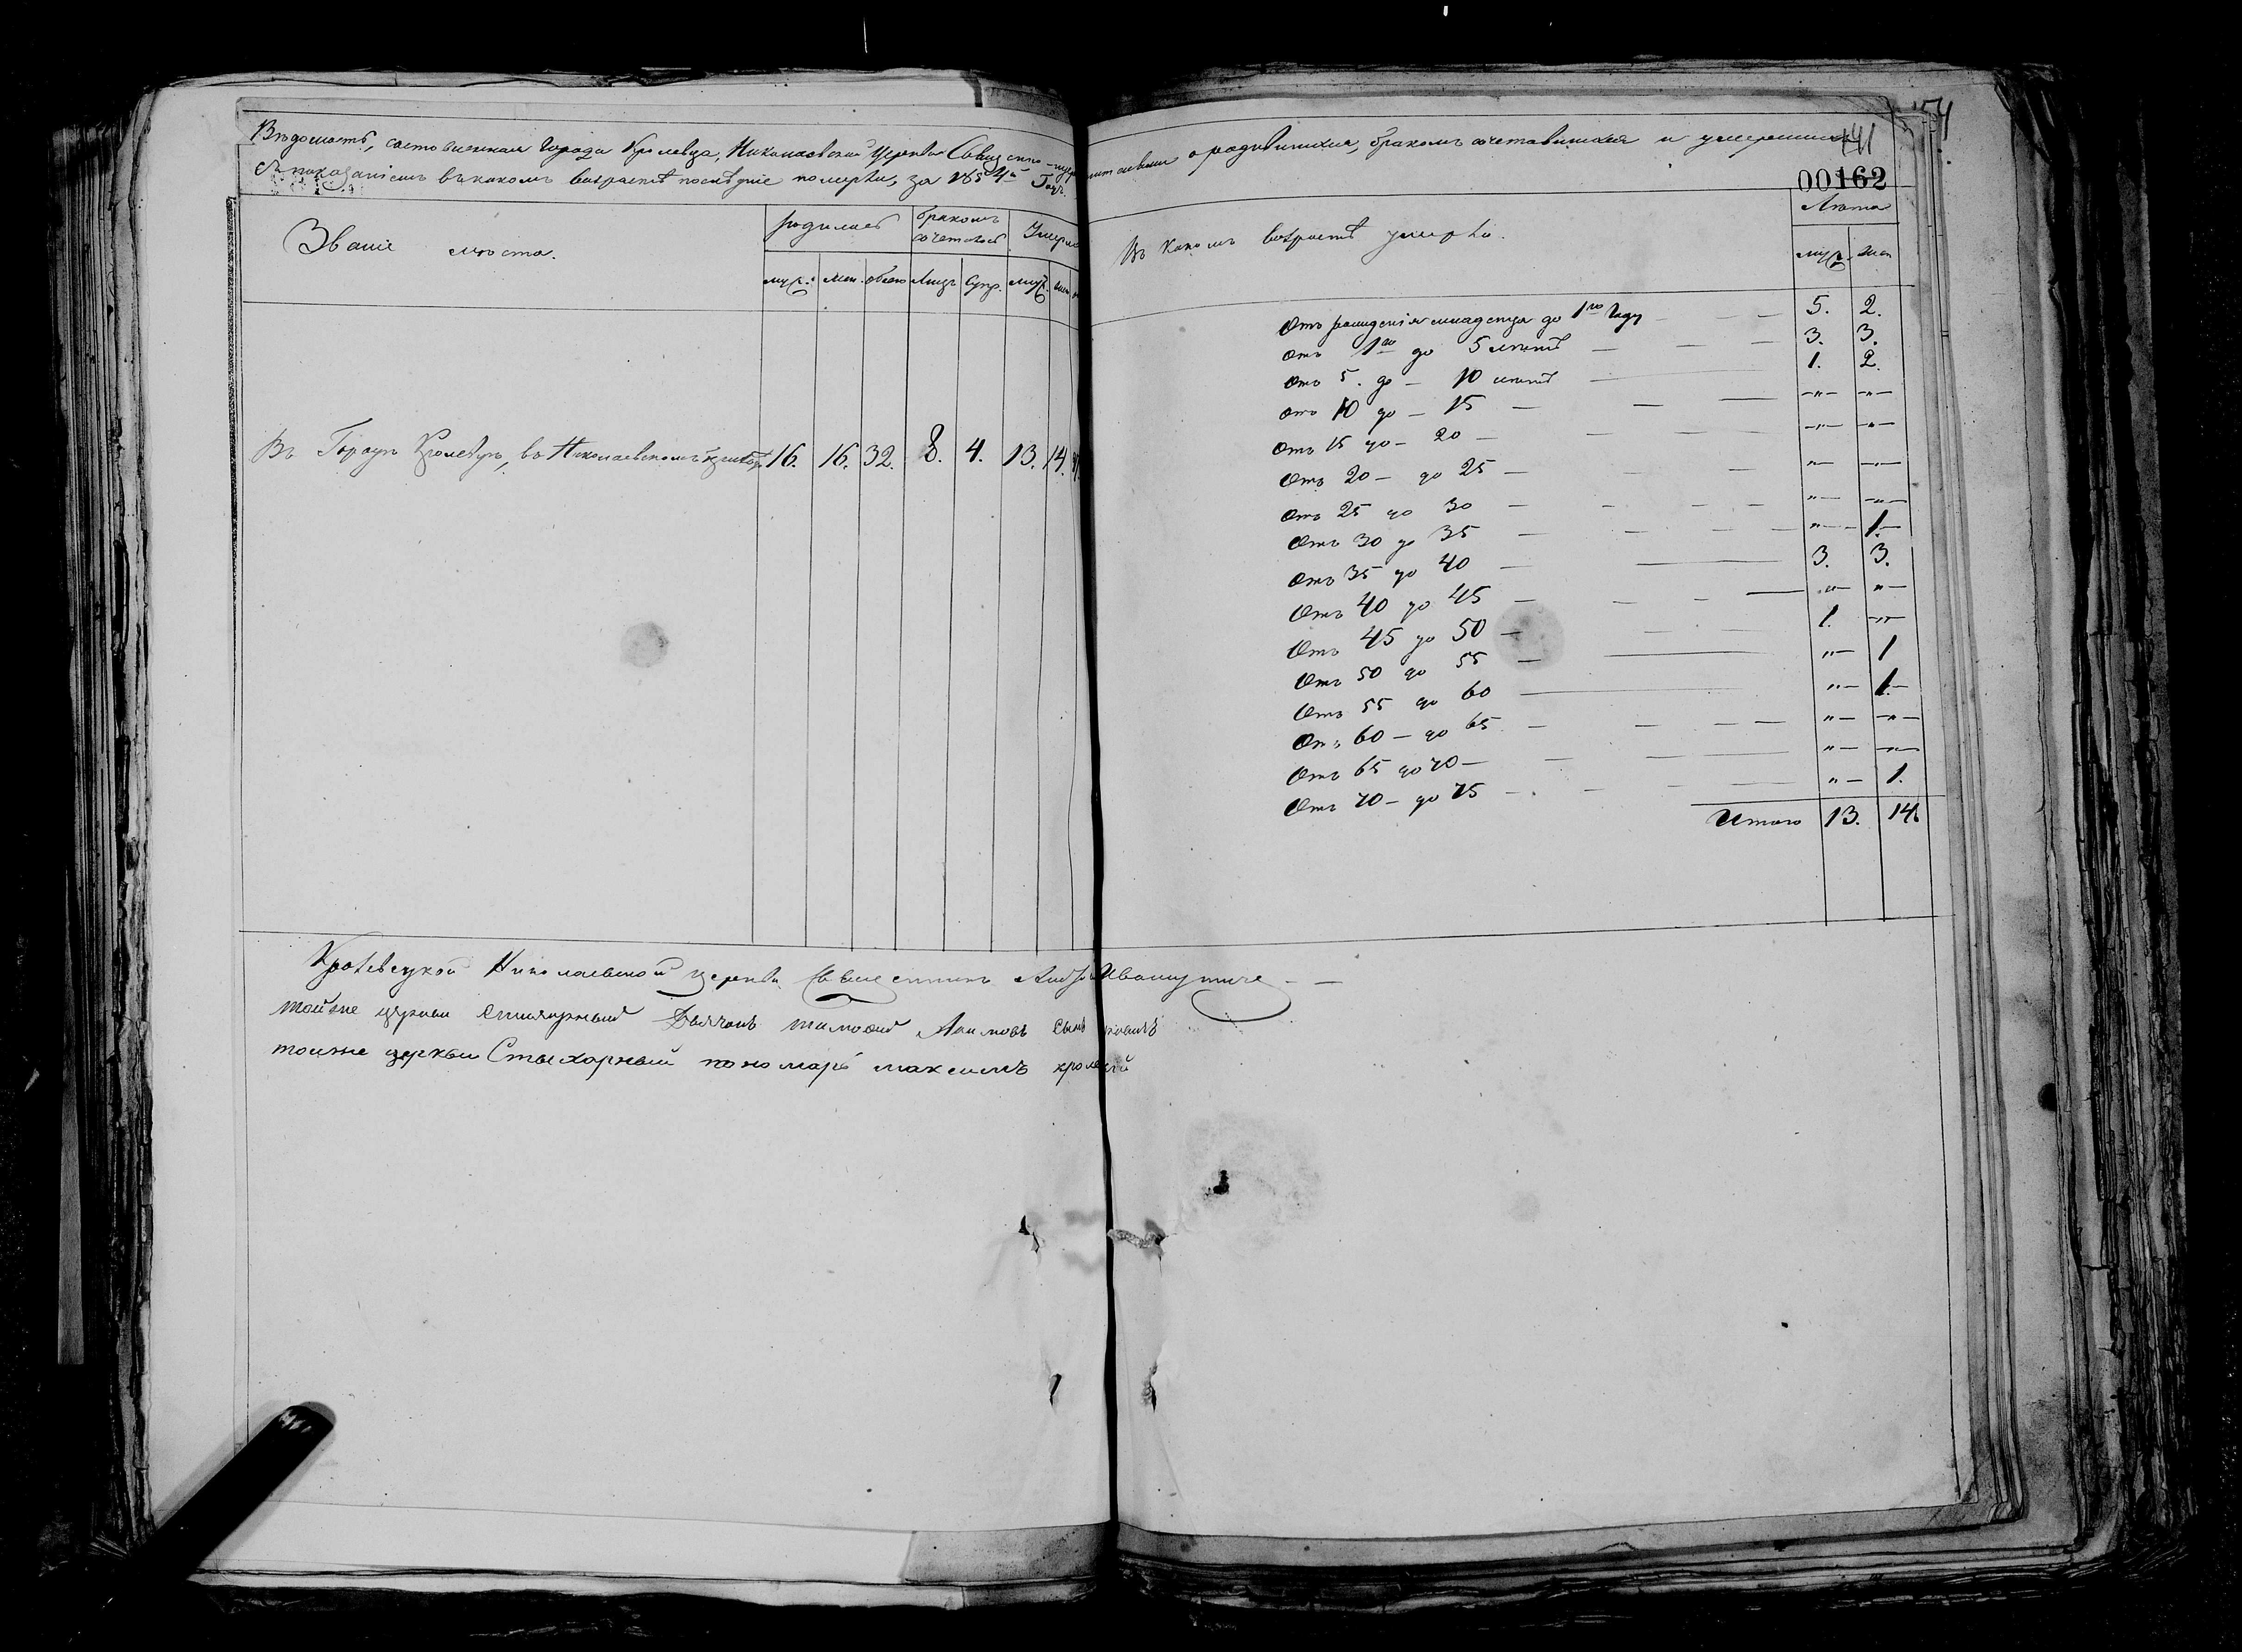 Вѣдомость, составленная Города Кролевца, Николаевской Церкви Священно-служительми о родившихся, бракомъ сочетавшихся и умершихъ
съ показаніемъ въ какомъ возрастѣ послѣдніе померли, за 1854й Годъ.
41
00162
Званіе мѣста.
родилось
бракомъ сочеталось
Умерло
Въ какомъ возрастѣ умерли.
Лѣта
муж. жен. обоего Лицъ Супр. муж. жен.
муж. жен
Въ Городѣ Кролевцѣ, въ Николаевскомъ 16. 16. 32. 8. 4. 13. 14.
Отъ рожденія младенца до 1го Году — — 5. 2.
Отъ 1го до 5 лѣтъ — — — 3. 3.
Отъ 5. до — 10 лѣтъ — 1. 2.
Отъ 10 до — 15 — — — —"— —"—
Отъ 15 до — 20 — — — —"— —"—
Отъ 20 — до 25 — "— —"—
Отъ 25 до 30 — — — — "— —"—
Отъ 30 до 35 — — — — "— 1.
Отъ 35 до 40 — — 3. 3.
Отъ 40 до 45 — — — "— "—
Отъ 45 до 50 — — — 1. —"—
Отъ 50 до 55 — — "— 1
Отъ 55 до 60 — "— 1.
Отъ 60 — до 65 — — — — "— —"—
Отъ 65 до 70 — — — "— —"—
Отъ 70 — до 75 — — — "— 1.
Итого 13. 14.
Кролевецкой Николаевской церкви Священникъ Ивашутиче
тойже церкви стихарный Дьячокъ Тимофей
тоиже церкви Стыхарный пономарь максимъ